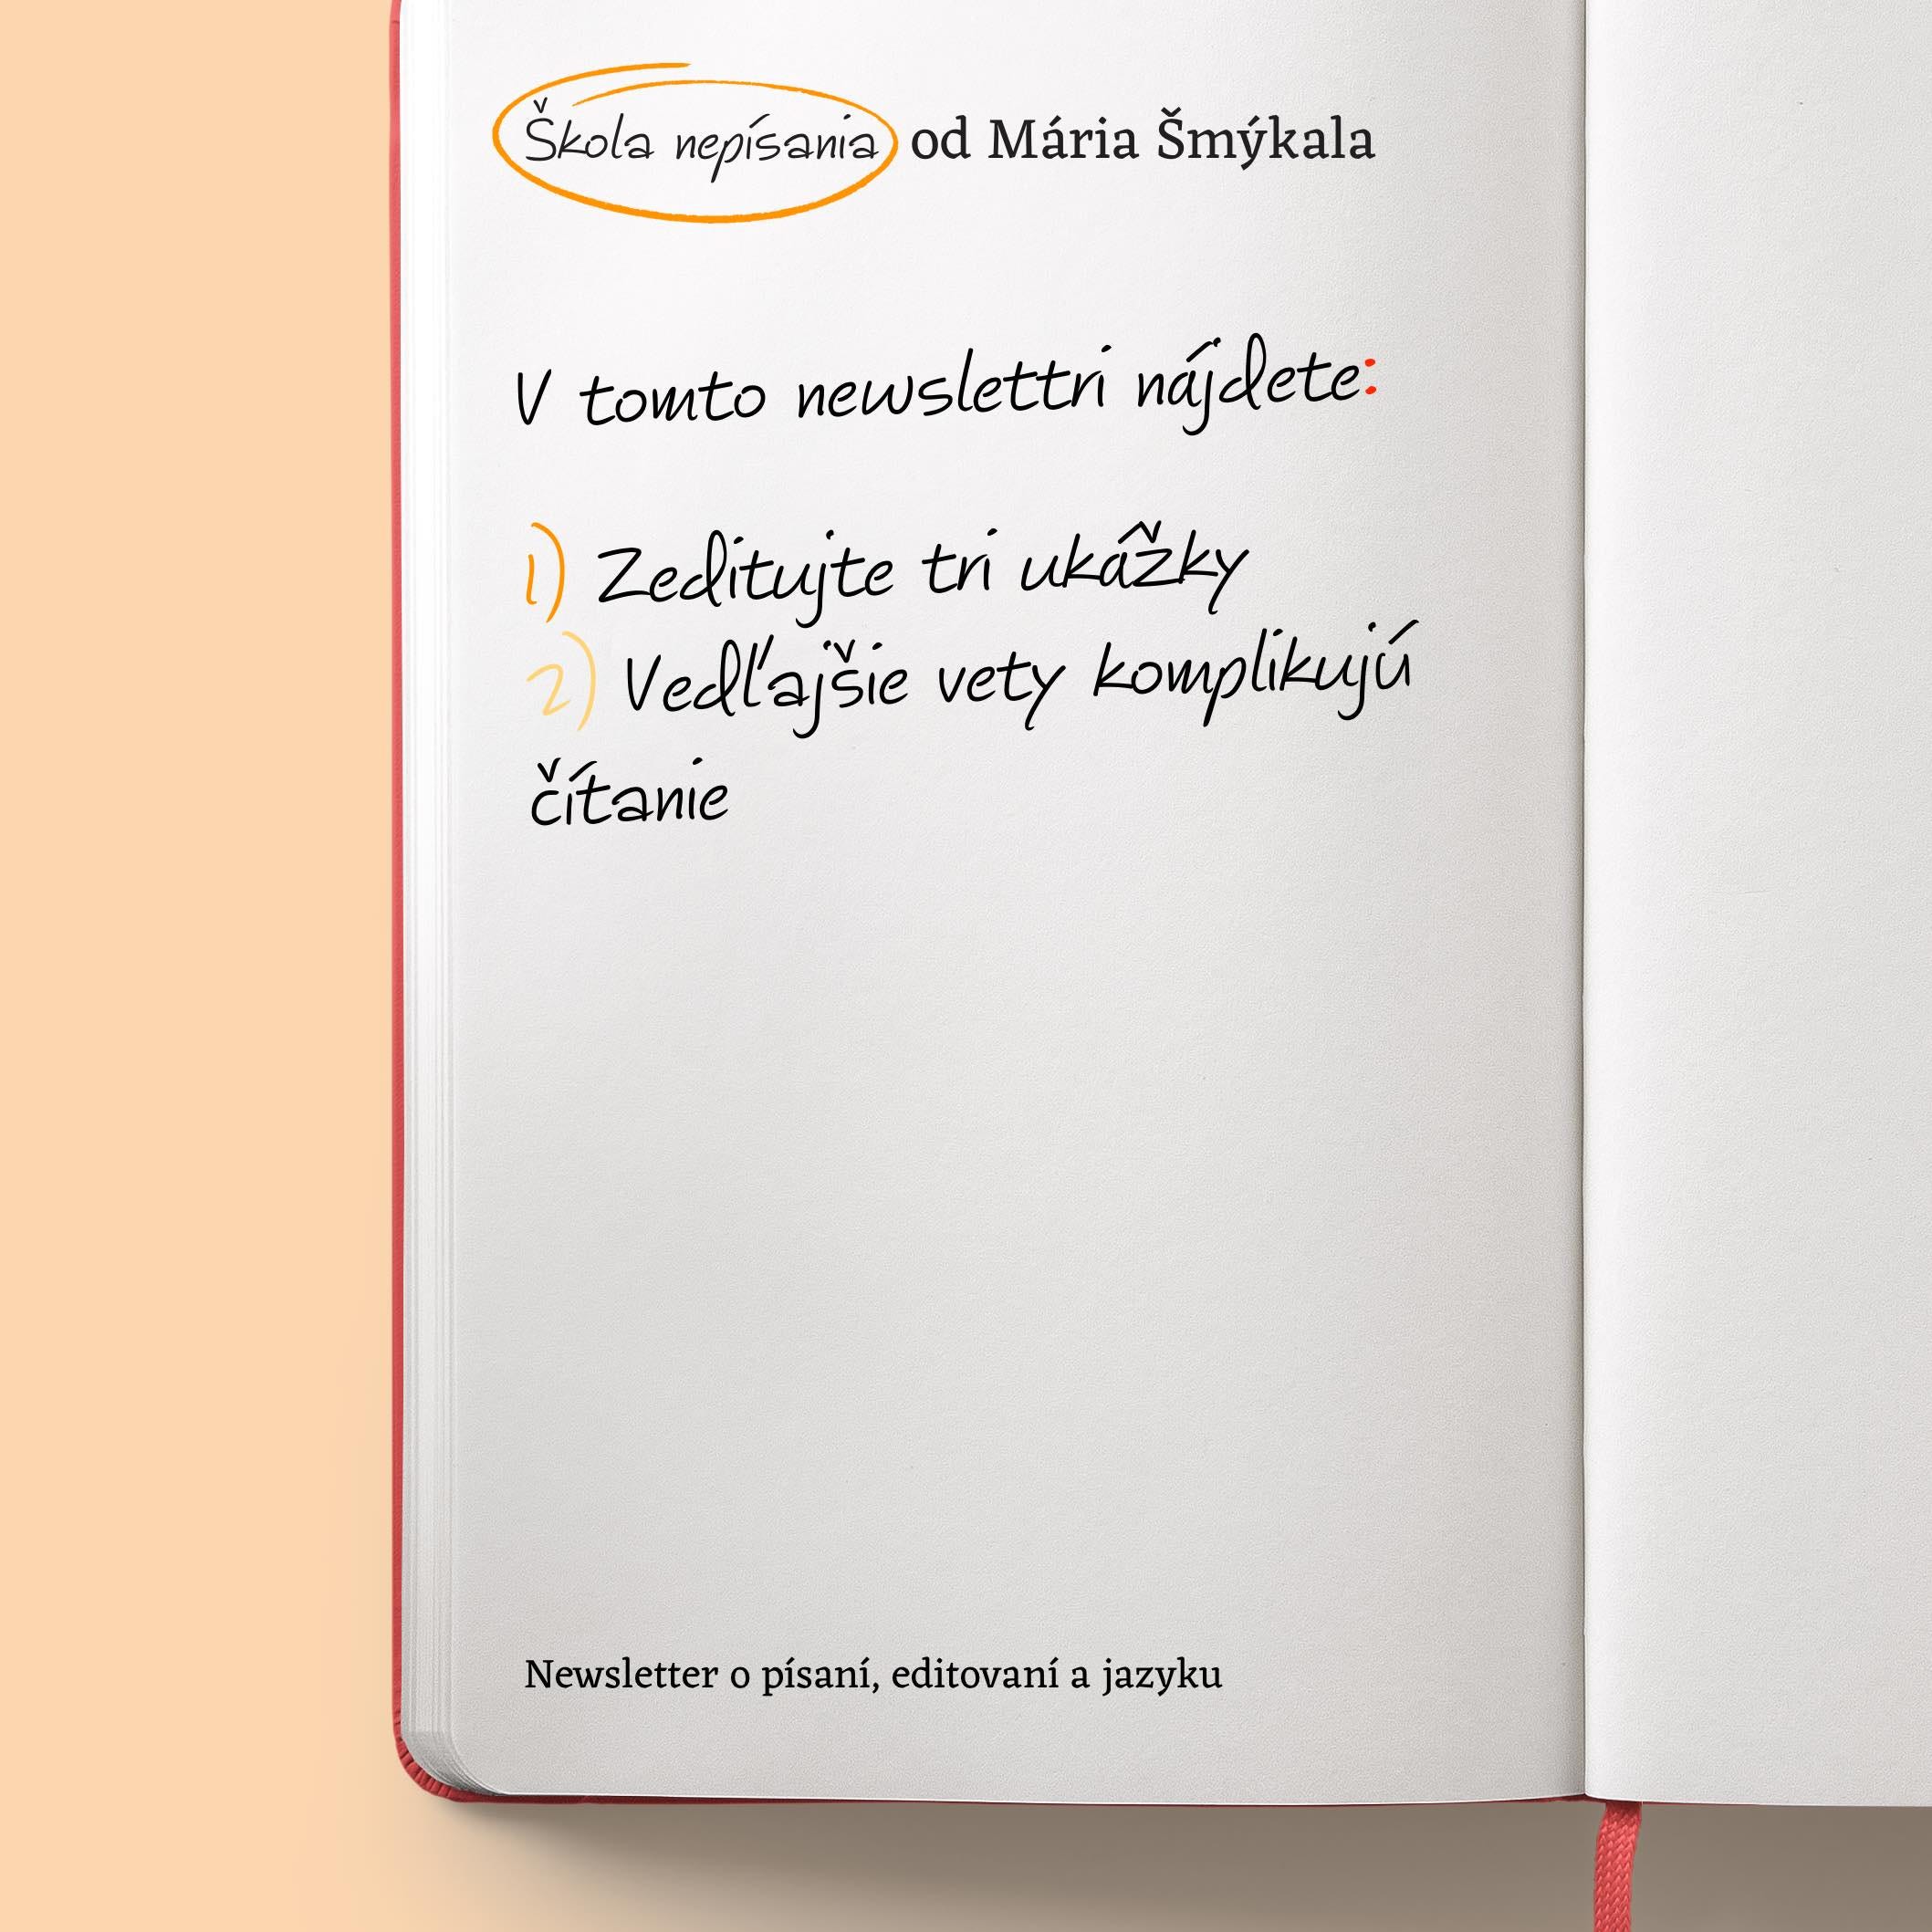 Škola nepísania od Mária Šmýkala
V tomto newslettri nájdete:
1) Zeditujte tri ukážky
2) Vedľajšie vety komplikujú
čítanie
Newsletter o písaní, editovaní a jazyku